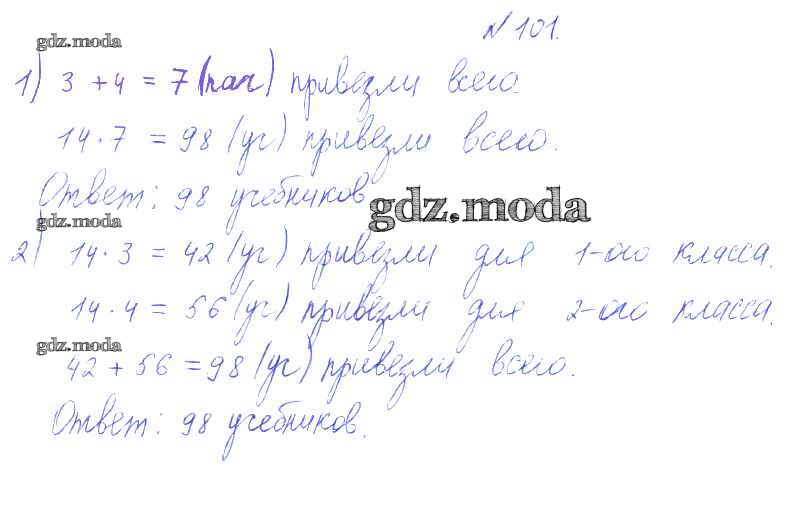 № 101.
gdz.moda
1) 3 + 4 = 7 (пач) привезли всего.
14 · 7 = 98 (уч) привезли всего.
Ответ: 98 учебников
gdz.moda
gdz.moda
2) 14 · 3 = 42 (уч) привезли для 1-ого класса.
14 · 4 = 56 (уч) привезли для 2-ого класса.
gdz.moda
42 + 56 = 98 (уч) привезли всего.
Ответ: 98 учебников.